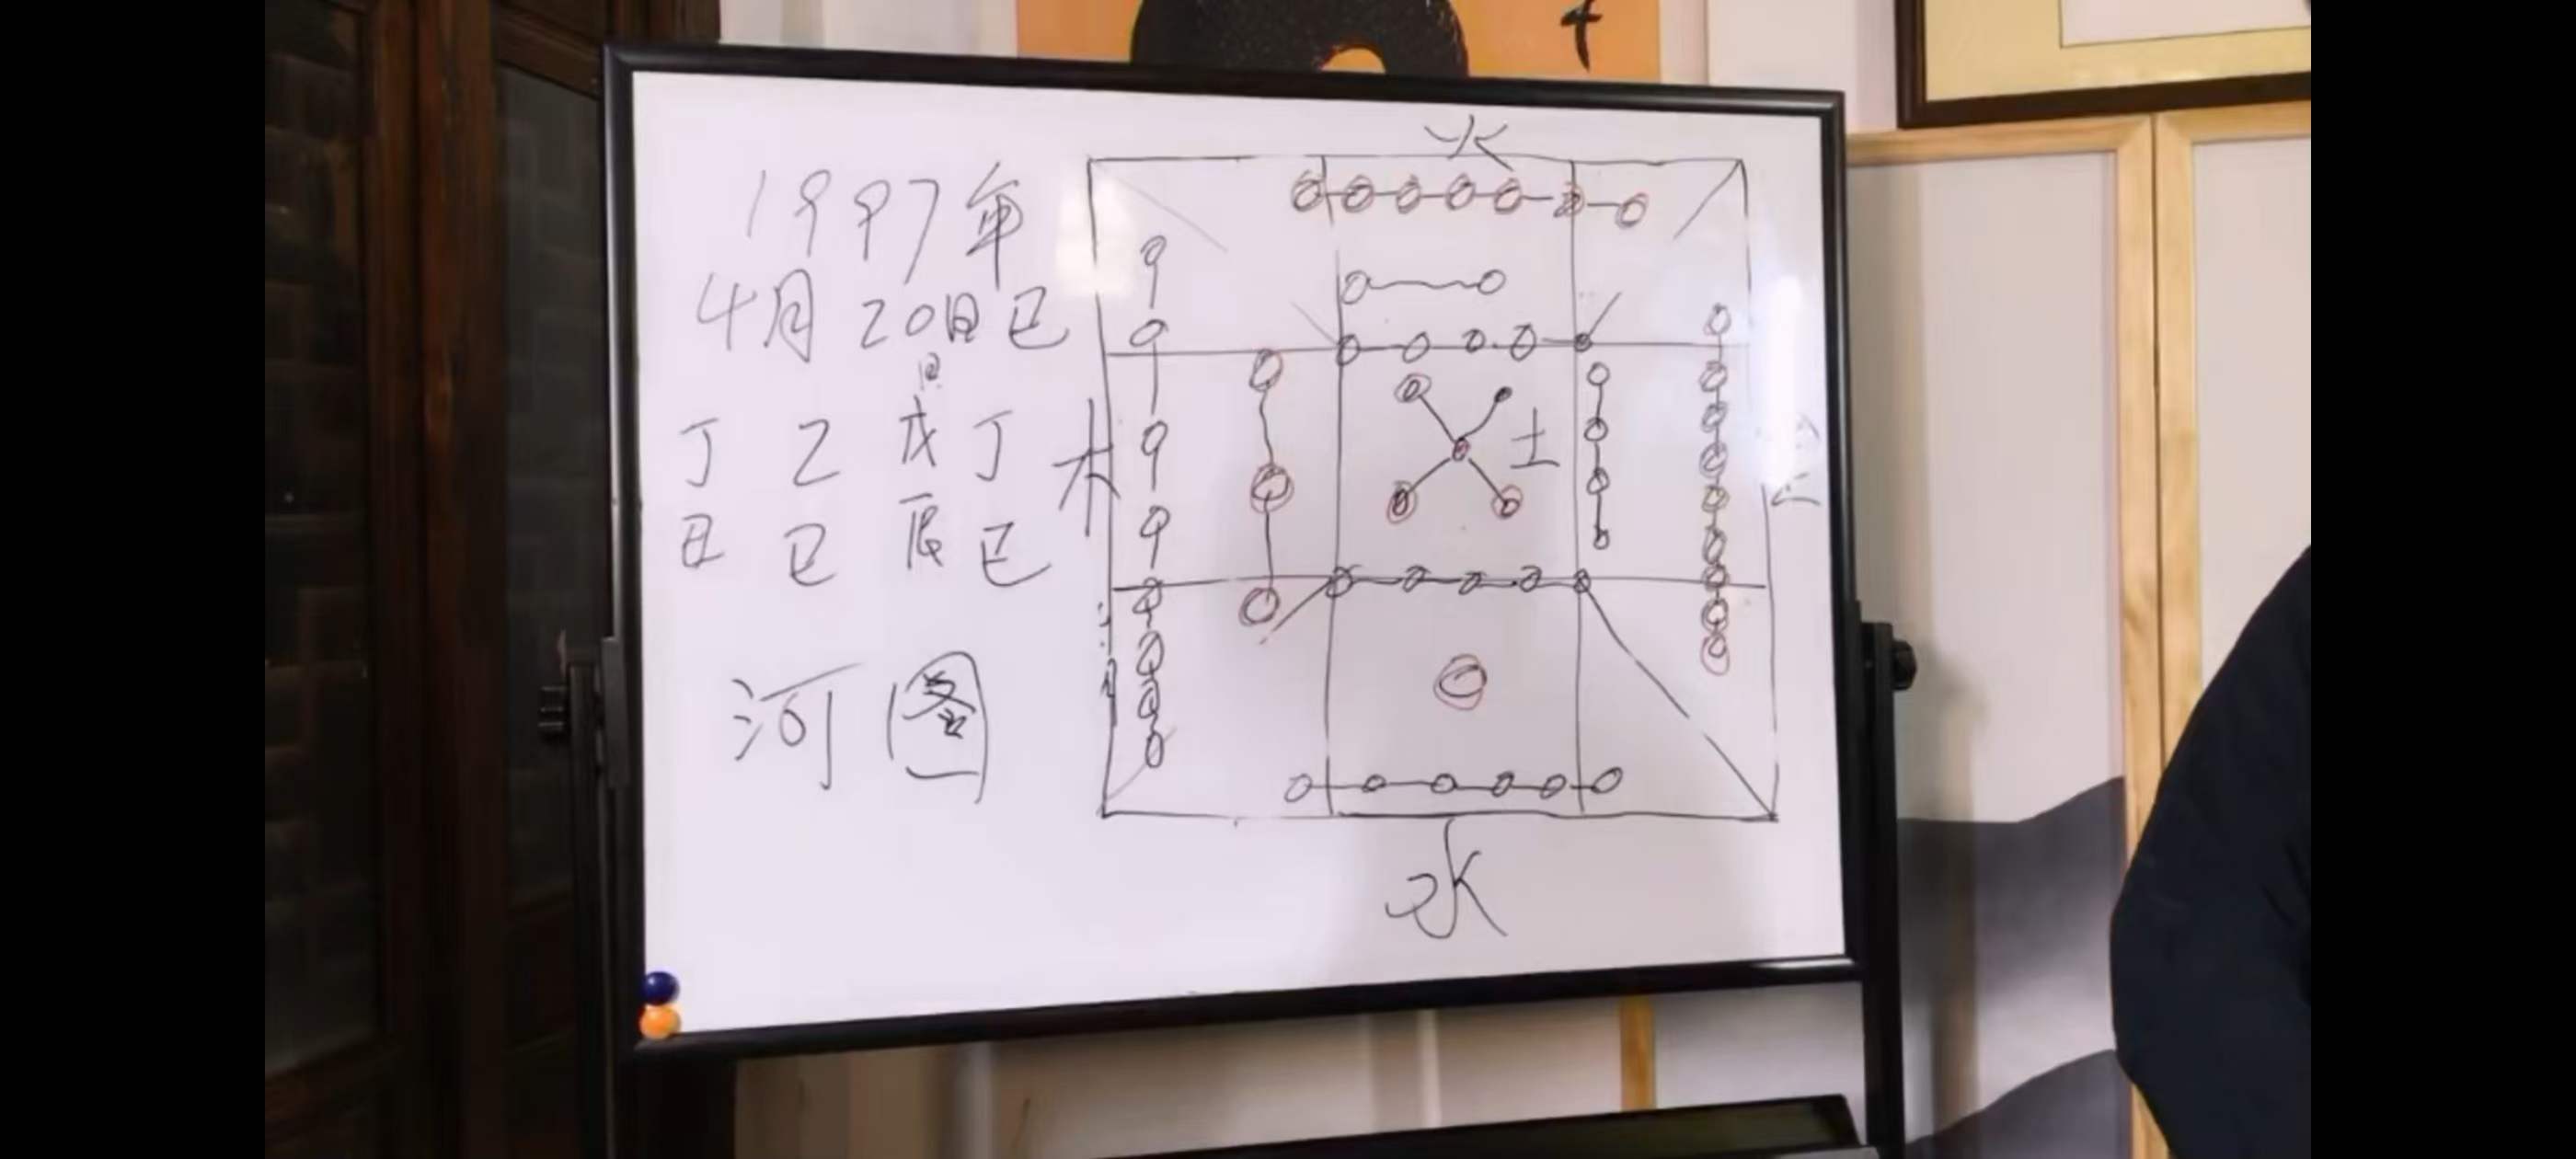 1997年
4月20日巳
丁乙戊丁
丑巳辰巳
河图
火
木
土
金
水